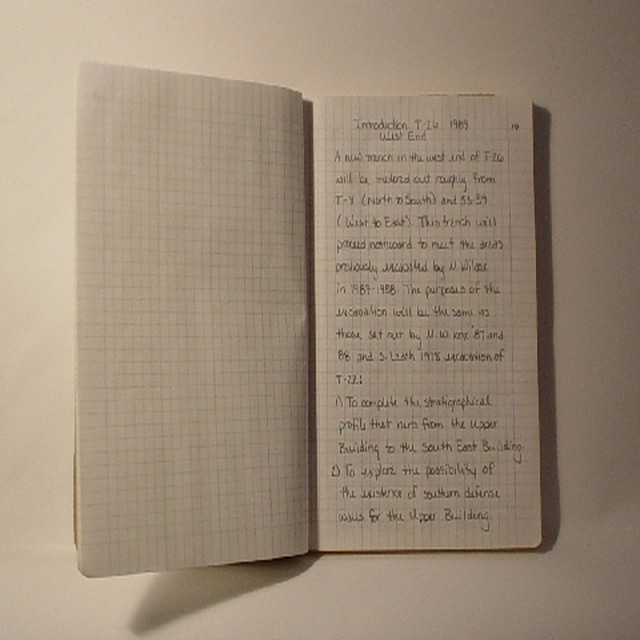 Introduction T-26 1989
19
West End
A new trench in the west end of T-26
will be metered out roughly from
T-Y (North to South) and 53-59
(West to East). This trench will
proceed northward to meet the areas
previously excavated by M. Wilcox
in 1987-1988. The purposes of the
excavation will be the same as
those set out by M. Wilcox '87 and
88 and S. 1978 excavation of
T-22:
1) To complete the stratigraphical
profile that runs from the Upper
Building to the South East Building
2) To explore the possibility of
the existence of southern defense
walls for the Upper Building